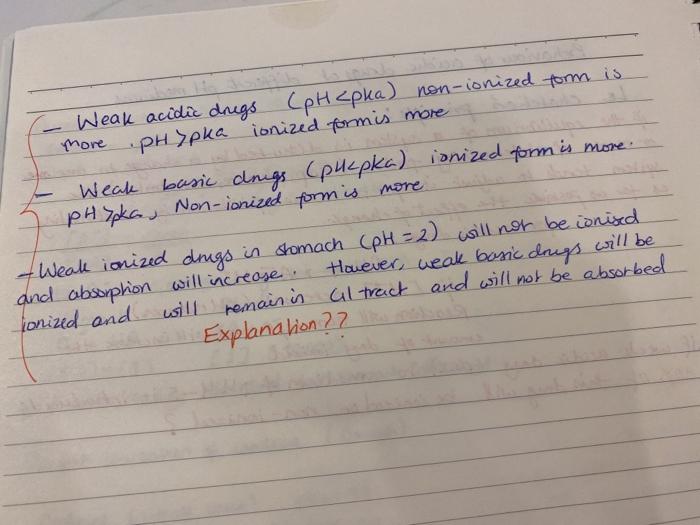 - Weak acidic drugs (pH<pka) non-ionized form is
more . pH>pka ionized form is more
- Weak basic drugs (pH<pka) ionized form is more.
pH>pka, Non-ionized form is more
- Weak ionized drugs in stomach (pH = 2) will not be ionised
and absorption will increase. However, weak basic drugs will be
ionized and will remain in GI tract and will not be absorbed
Explanation??